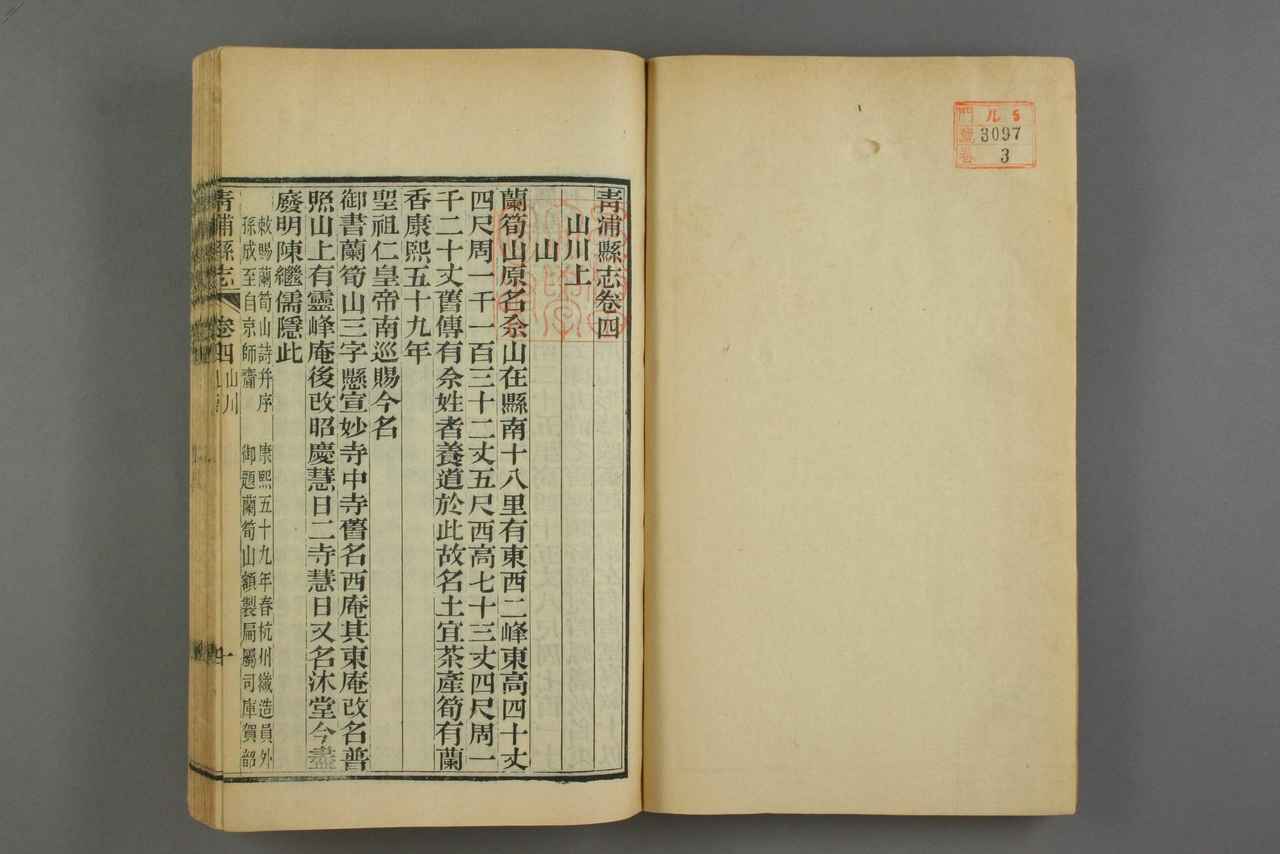 門 ル 5
號 3097
卷 3
青浦縣志卷四
山川上
山
蘭筍山原名佘山在縣南十八里有東西二峰東高四十丈
四尺周一千一百三十二丈五尺西高七十三丈四尺周一
千二十丈舊傳有佘姓者養道於此故名土宜茶產筍有蘭
香康熙五十九年
聖祖仁皇帝南巡賜今名
御書蘭筍山三字懸宣妙寺中寺舊名西庵其東庵改名普
照山上有靈峰庵後改昭慶慧日二寺慧日又名沐堂今盡
廢明陳繼儒隱此
敕賜蘭筍山詩并序 康熙五十九年春杭州織造員外
孫成至自京師齎 御題蘭筍山額製扁屬司庫賀韶
青浦縣志 卷四 山川